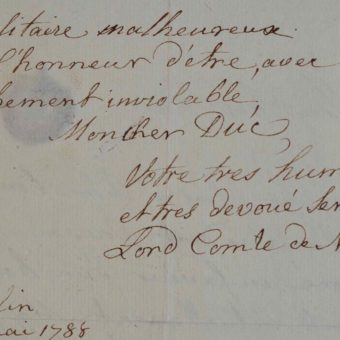 litaire malheureux.
l'honneur d'être, avec
hement inviolable,
Moncher Duc,
Votre tres hum
et tres devoué ser
Lord Comte de N
lin
mai 1788